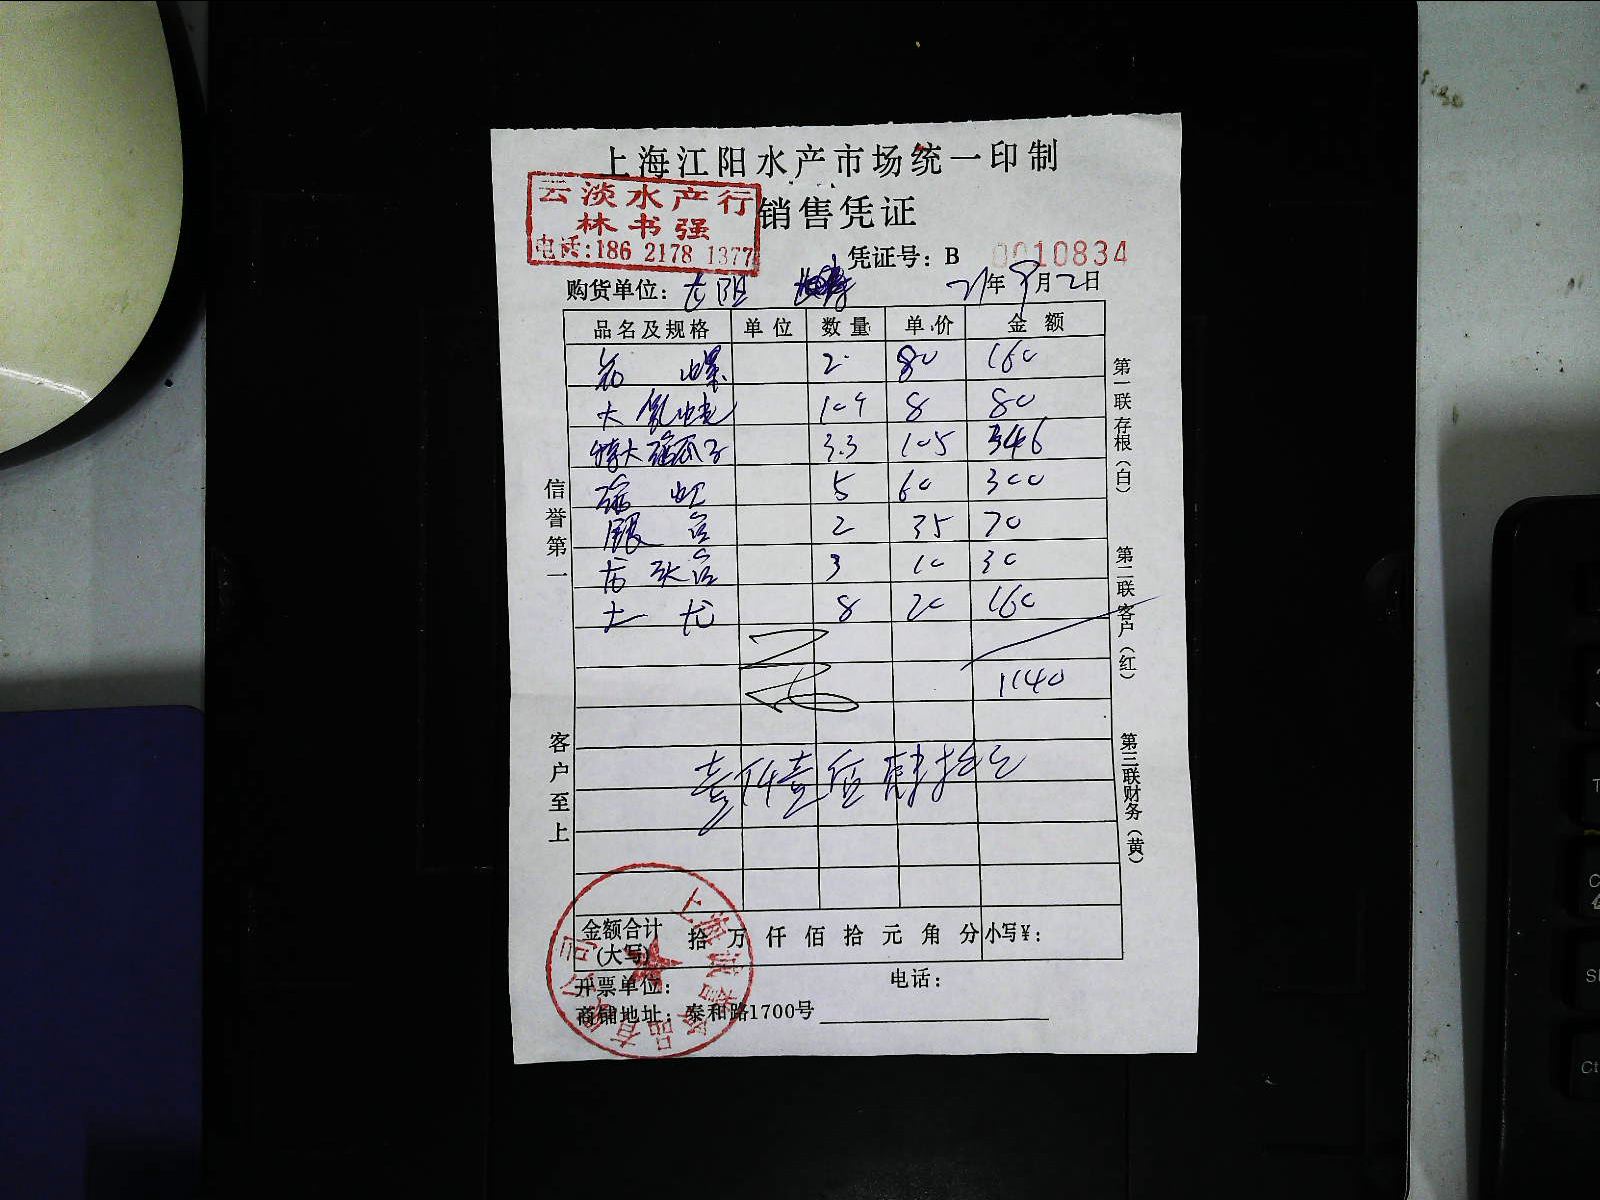 上海江阳水产市场统一印制
云淡水产行
林书强
电话:186 2178 1377
销售凭证
凭证号：B 0010834
购货单位：
21年9月2日
品名及规格 单位 数量 单价 金额
螺 2 80 160
大 8 80
特大 瓜子 3.3 105 346
虹 5 60 300
银 2 35 70
3 10 30
土龙 8 20 160
1140
壹仟壹佰肆拾元
金额合计(大写) 拾 万 仟 佰 拾 元 角 分 小写¥：
开票单位：
电话：
商铺地址：泰和路1700号
信誉第一
客户至上
第一联存根（白）
第二联客户（红）
第三联财务（黄）